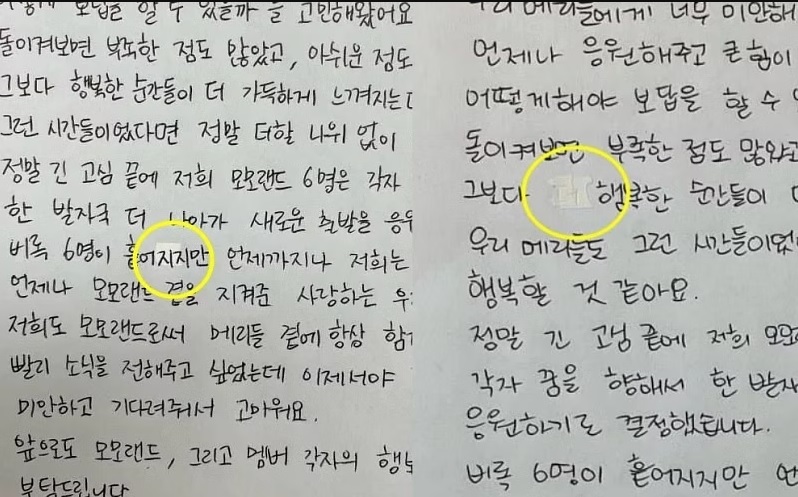 보답을 할 수 있을까 를 고민해왔어요
돌이켜보면 부족한 점도 많았고, 아쉬운 점도
그보다 행복한 순간들이 더 가득하게 느껴지는
그런 시간들이었다면 정말 더할 나위 없이
정말 긴 고심 끝에 저희 모모랜드 6명은 각자
한 발자국 더 나아가 새로운 출발을 응
비록 6명이 흩어지지만 언제까지나 저희는
언제나 모모랜드 곁을 지켜준 사랑하는 우
저희도 모모랜드로써 메리들 곁에 항상 함
빨리 소식을 전해주고 싶었는데 이제서야
미안하고 기다려줘서 고마워요.
앞으로도 모모랜드, 그리고 멤버 각자의 행
부탁드립니다
우리 메리들에게 너무 미안해
언제나 응원해주고 큰 힘이
어떻게해야 보답을 할 수
돌이켜보면 부족한 점도 많았고
그보다 더 행복한 순간들이
우리 메리들도 그런 시간들이었
행복할 것 같아요.
정말 긴 고심 끝에 저희 모모
각자 꿈을 향해서 한 발자
응원하기로 결정했습니다.
비록 6명이 흩어지지만 언